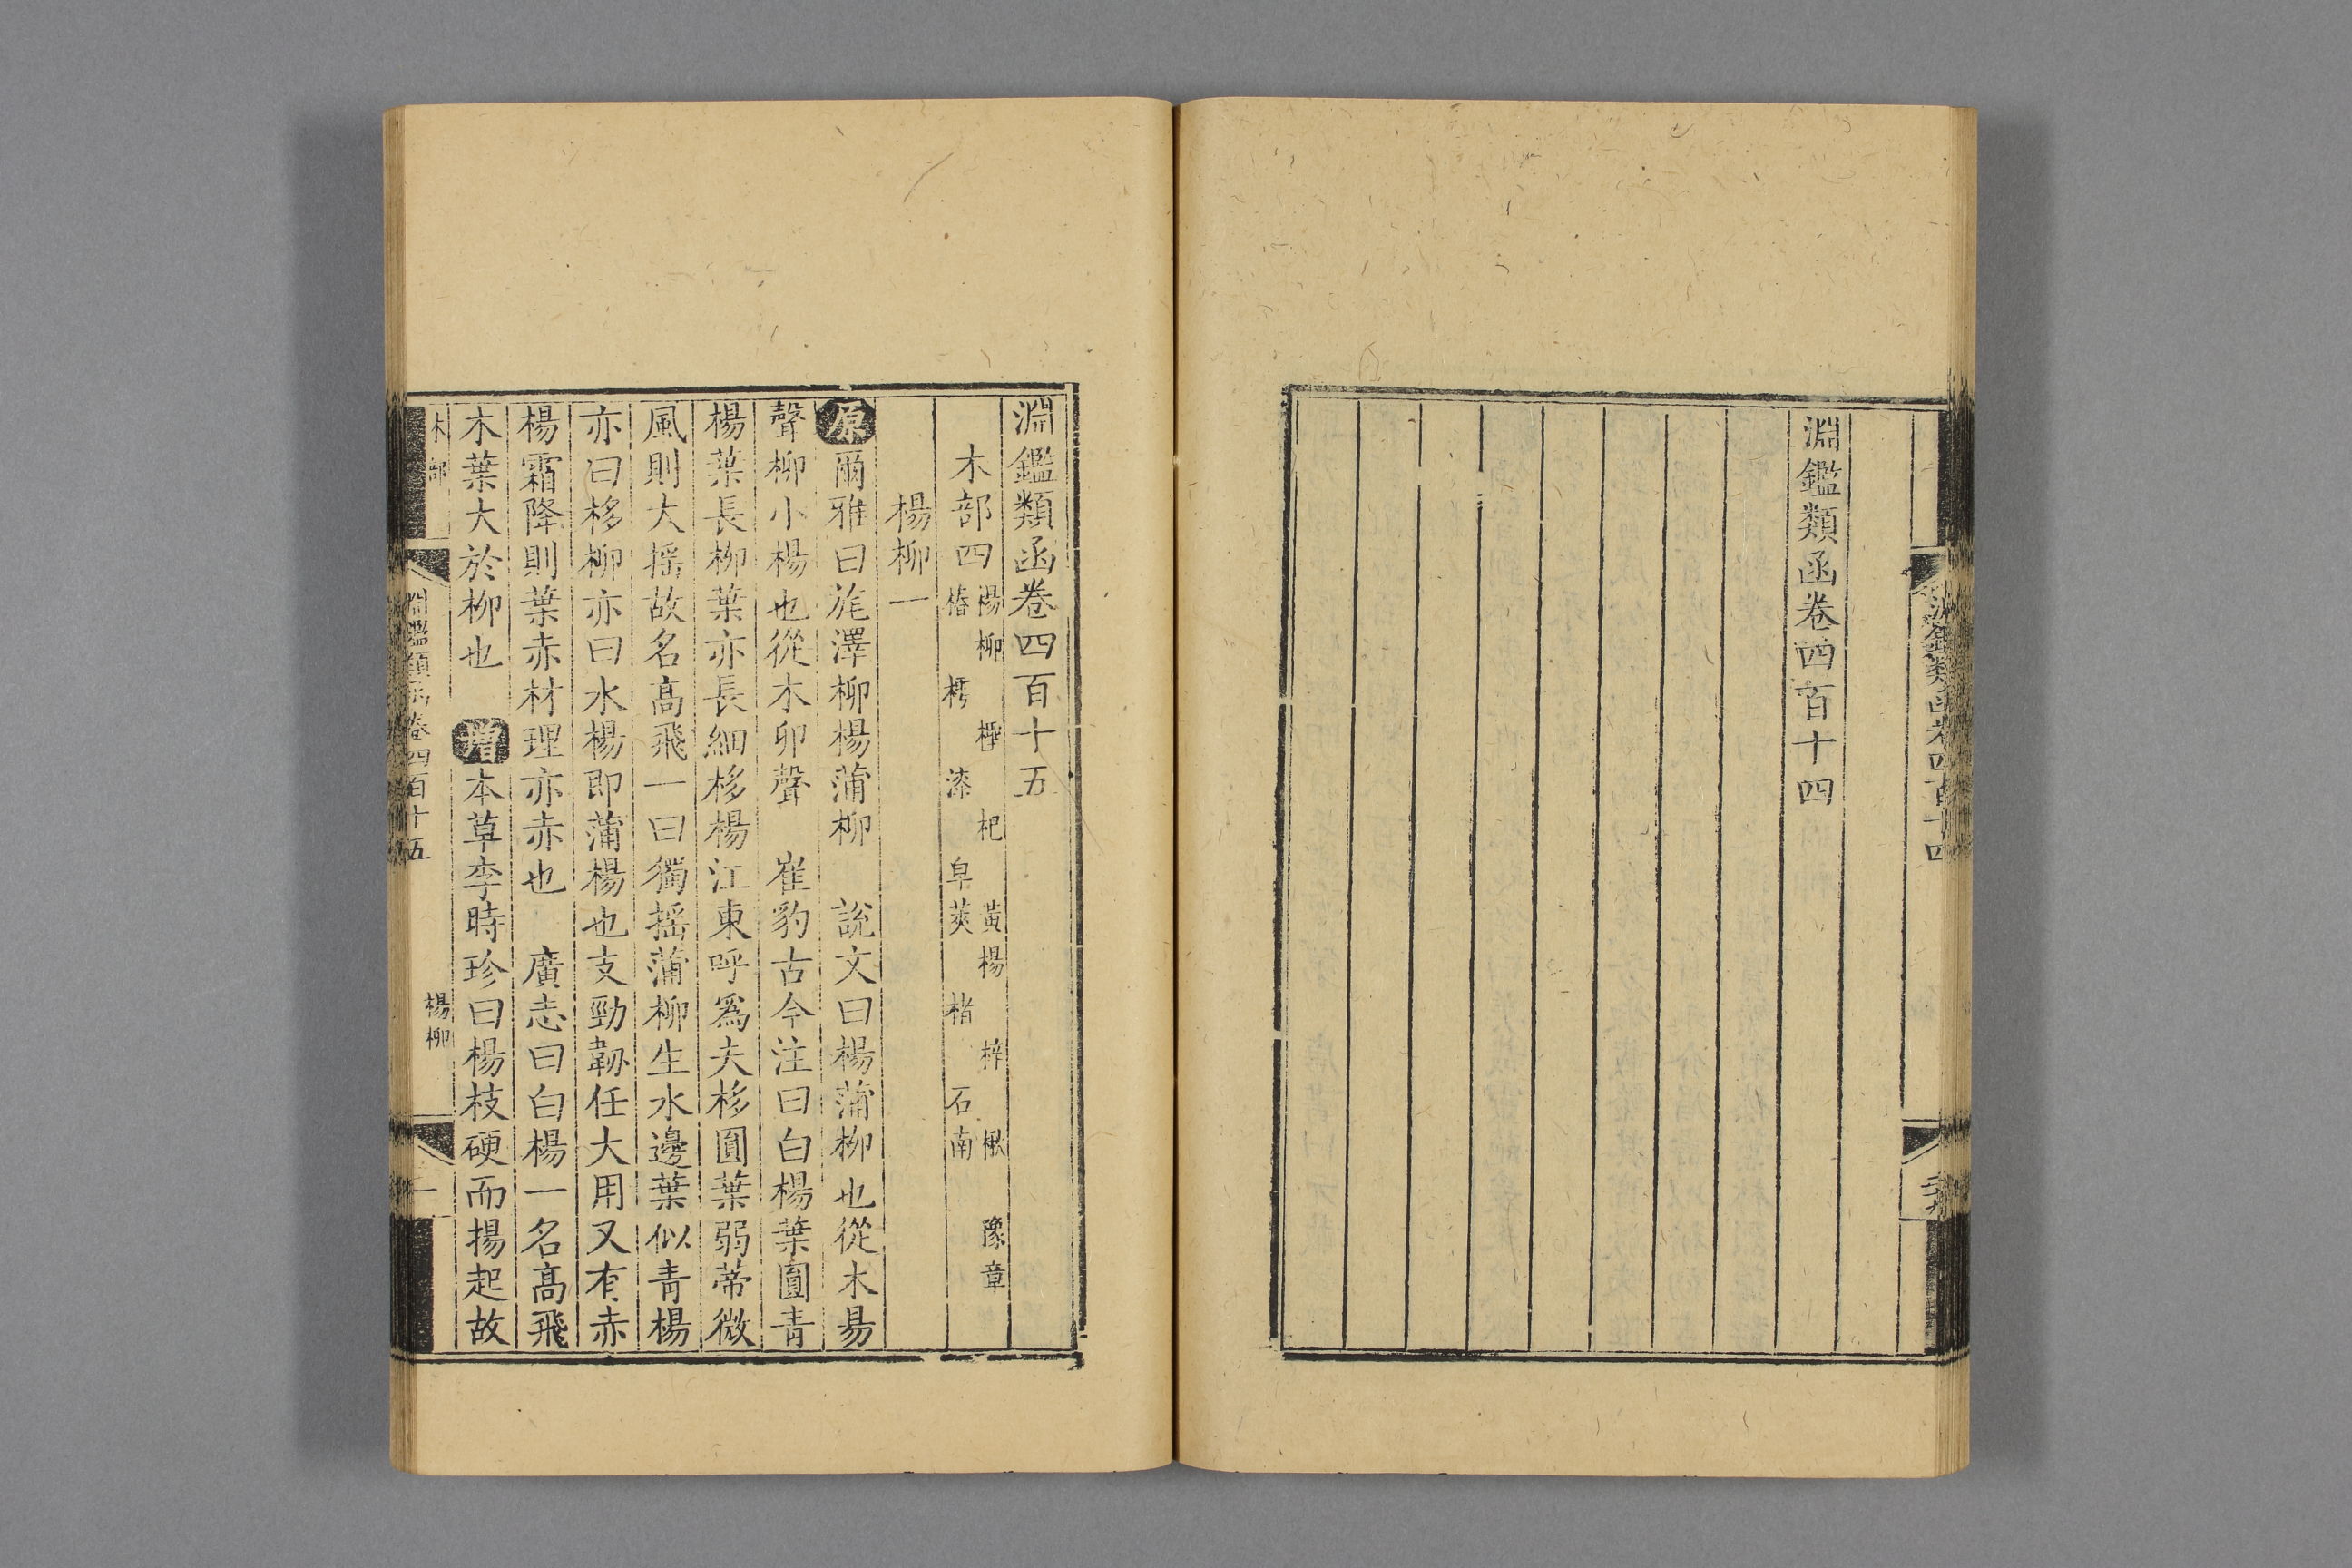 淵鑑類函卷四百十四
淵鑑類函卷四百十四
淵鑑類函卷四百十五
木部四
楊柳 檉 杞 黃楊 梓 楸 豫章
椿 樗 漆 皁莢 楮 石南
楊柳一
原爾雅曰旄澤柳楊蒲柳 說文曰楊蒲柳也從木昜
聲柳小楊也從木卯聲 崔豹古今注曰白楊葉圓青
楊葉長柳葉亦長細栘楊江東呼爲夫栘圓葉弱蒂微
風則大搖故名高飛一曰獨搖蒲柳生水邊葉似青楊
亦曰栘柳亦曰水楊即蒲楊也支勁韌任大用又有赤
楊霜降則葉赤材理亦赤也 廣志曰白楊一名高飛
木葉大於柳也 增本草李時珍曰楊枝硬而揚起故
木部
淵鑑類函卷四百十五
楊柳
一